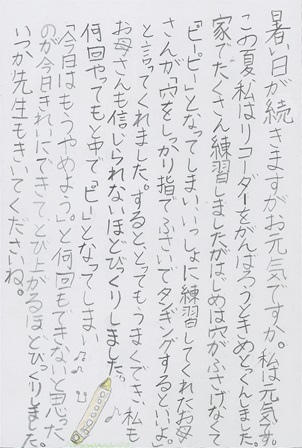 暑い日が続きますがお元気ですか。私は元気です。
この夏、私はリコーダーをがんばろうときめとっくんしました。
家でたくさん練習しましたがはじめは穴がふさげなくて
「ピーピー」となってしまい、いっしょに練習してくれたお母
さんが「穴をしっかり指でふさいでタンギングするといいよ」
と言ってくれました。すると、とってもうまくでき、私も
お母さんも信じられないほどびっくりしました。
何回やっても と中で、「ピー」となってしまい
「今日はもうやめよう。」と何回もできないと思った
のが今日きれいにできて、とび上がるほどびっくりしました。
いつか先生もきいてくださいね。